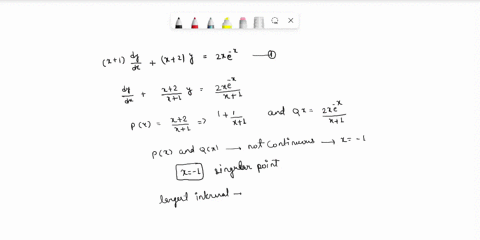 (x+1) dy/dx + (x+2) y = 2xe^-x —①
dy/dx + x+2/x+1 y = 2xe^-x/x+1
P(x) = x+2/x+1 => 1+1/x+1 and Qx = 2xe^-x/x+1
P(x) and Q(x) → not continuous → x=-1
x=-1 singular point
largest interval →